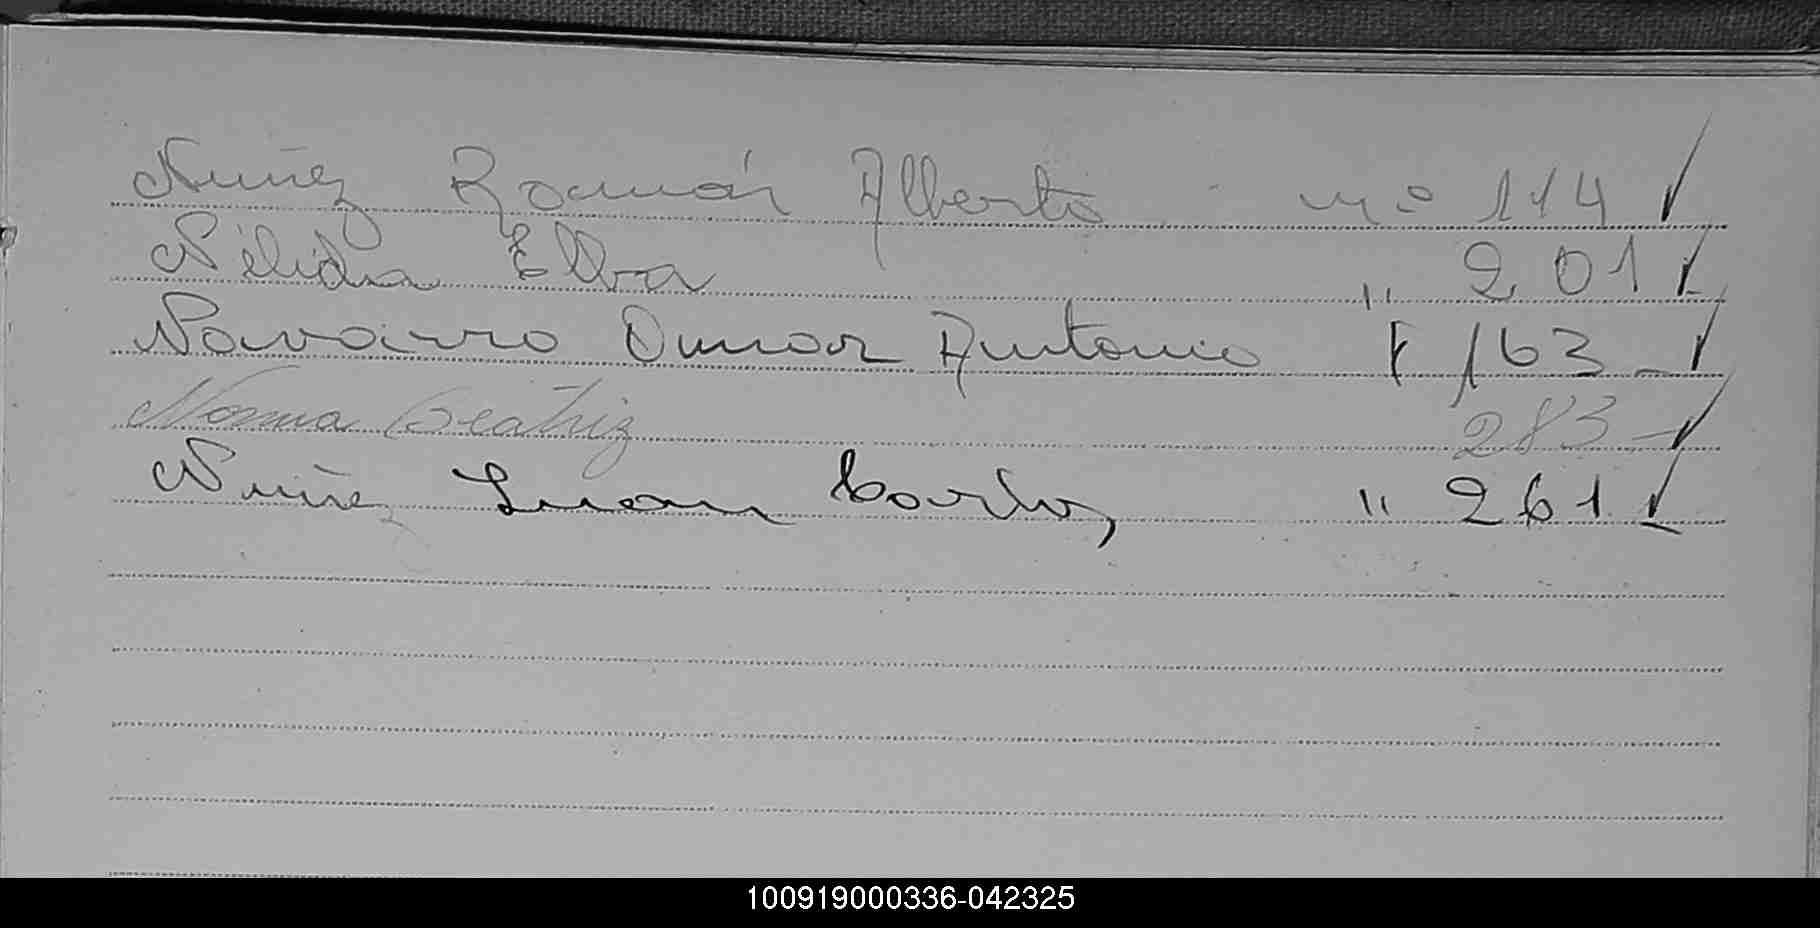 Nuñez Román Alberto nº 114 ✓
Nélida Elba " 201 ✓
Navarro Omar Antonio F 163 - ✓
Norma Beatriz 283 - ✓
Nuñez Juan Carlos " 261 ✓
100919000336-042325